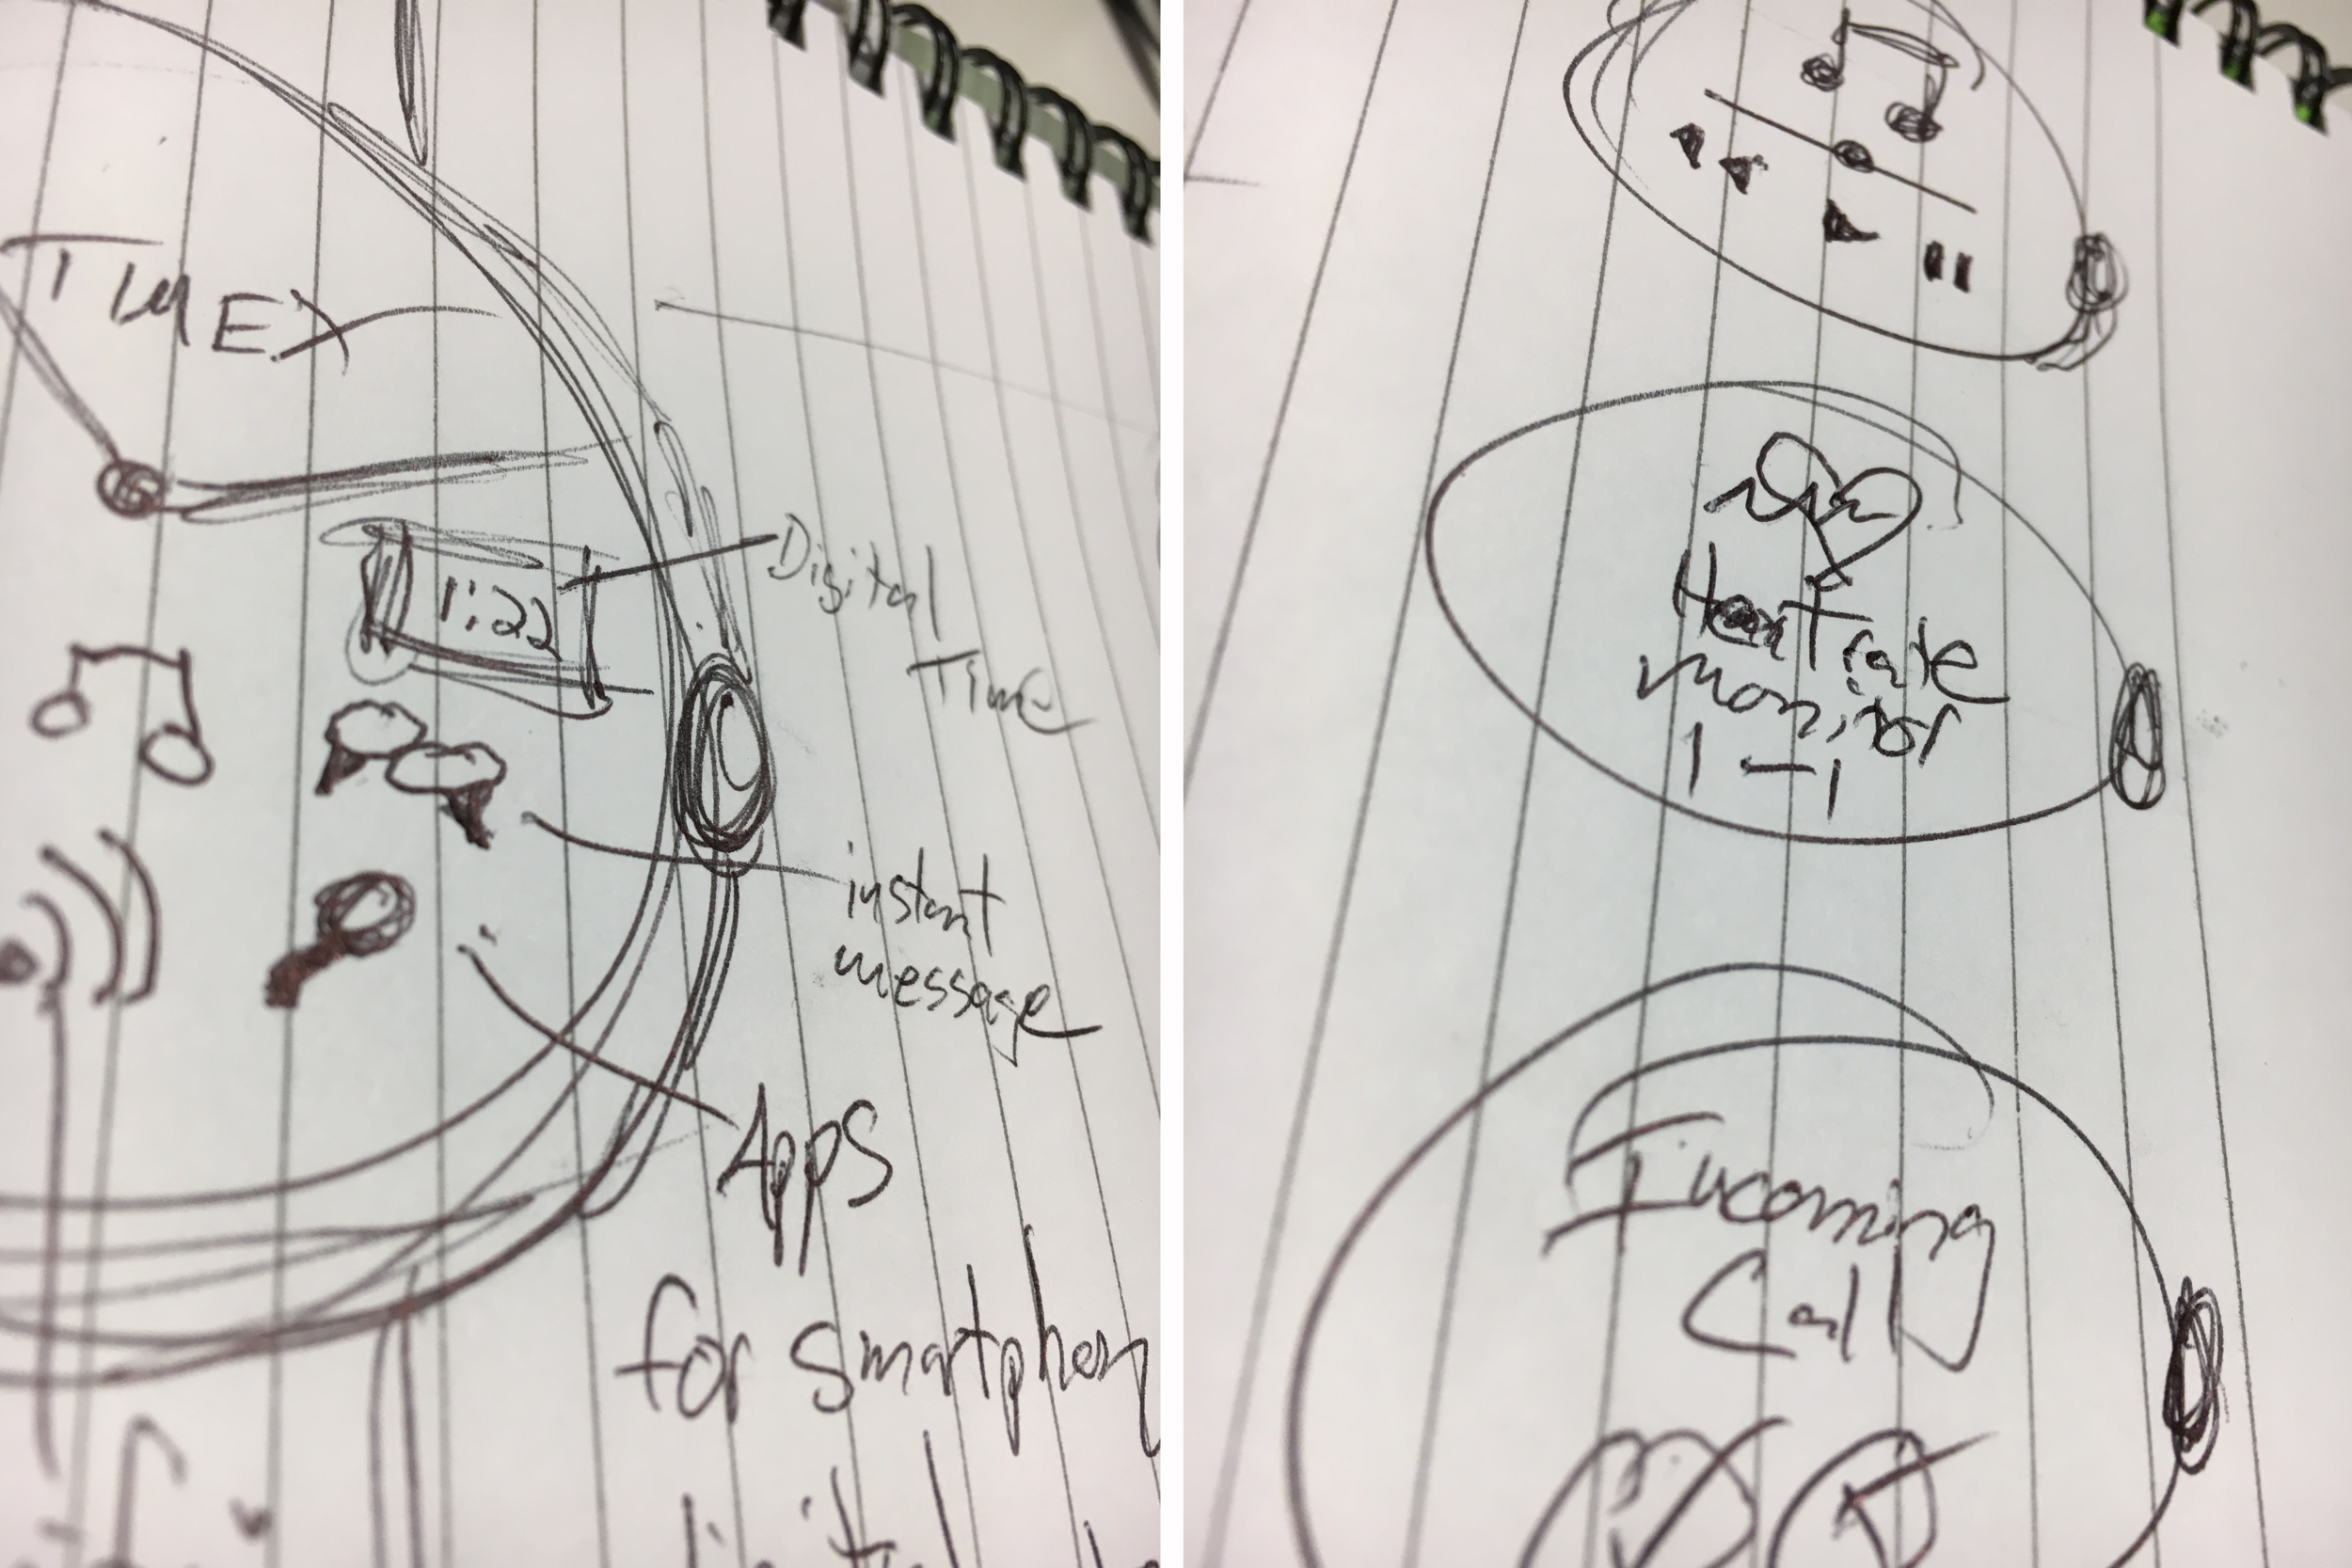 TIMEX
1:22
Digital
Time
instant
message
Apps
for smartphon
Heart rate
monitor
Incoming
Call